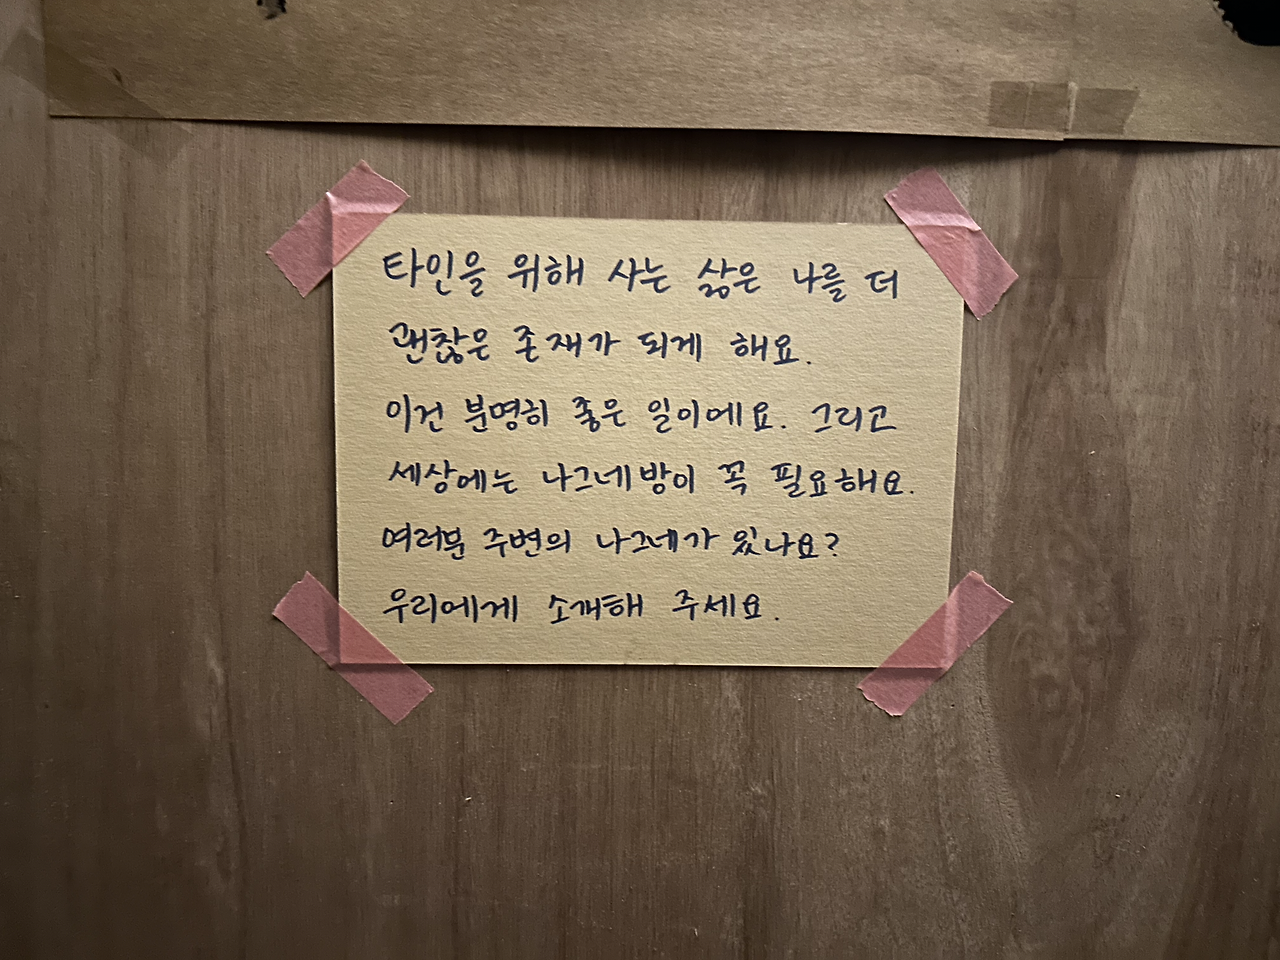 타인을 위해 사는 삶은 나를 더
괜찮은 존재가 되게 해요.
이건 분명히 좋은 일이에요. 그리고
세상에는 나그네방이 꼭 필요해요.
여러분 주변의 나그네가 있나요?
우리에게 소개해 주세요.